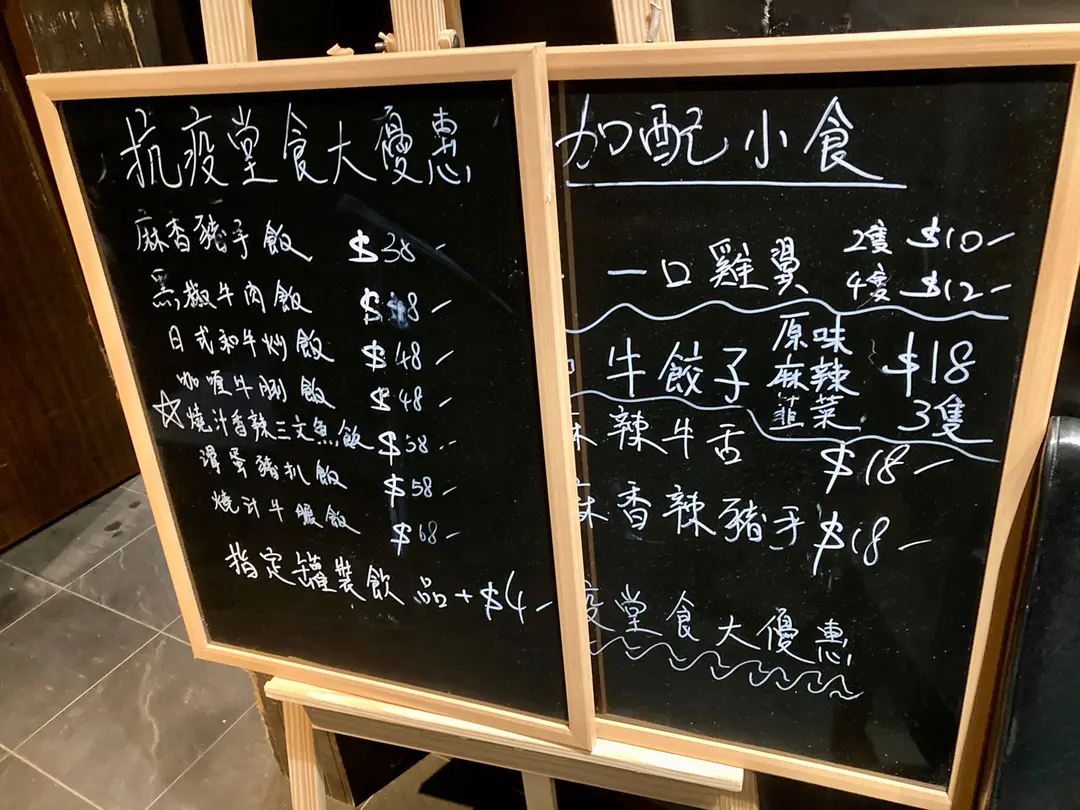 抗疫堂食大優惠
麻香豬手飯 $38-
黑椒牛肉飯 $48-
日式和牛炒飯 $48-
咖喱牛脷飯 $48-
☆燒汁香辣三文魚飯 $58-
滑蛋豬扒飯 $58-
燒汁牛飯 $68-
指定罐裝飲品+$4-
加配小食
一口雞翼 2隻 $10-
4隻 $12-
牛餃子 原味 麻辣 韮菜 $18 3隻
麻辣牛舌 $18-
麻香辣豬手 $18-
疫堂食大優惠